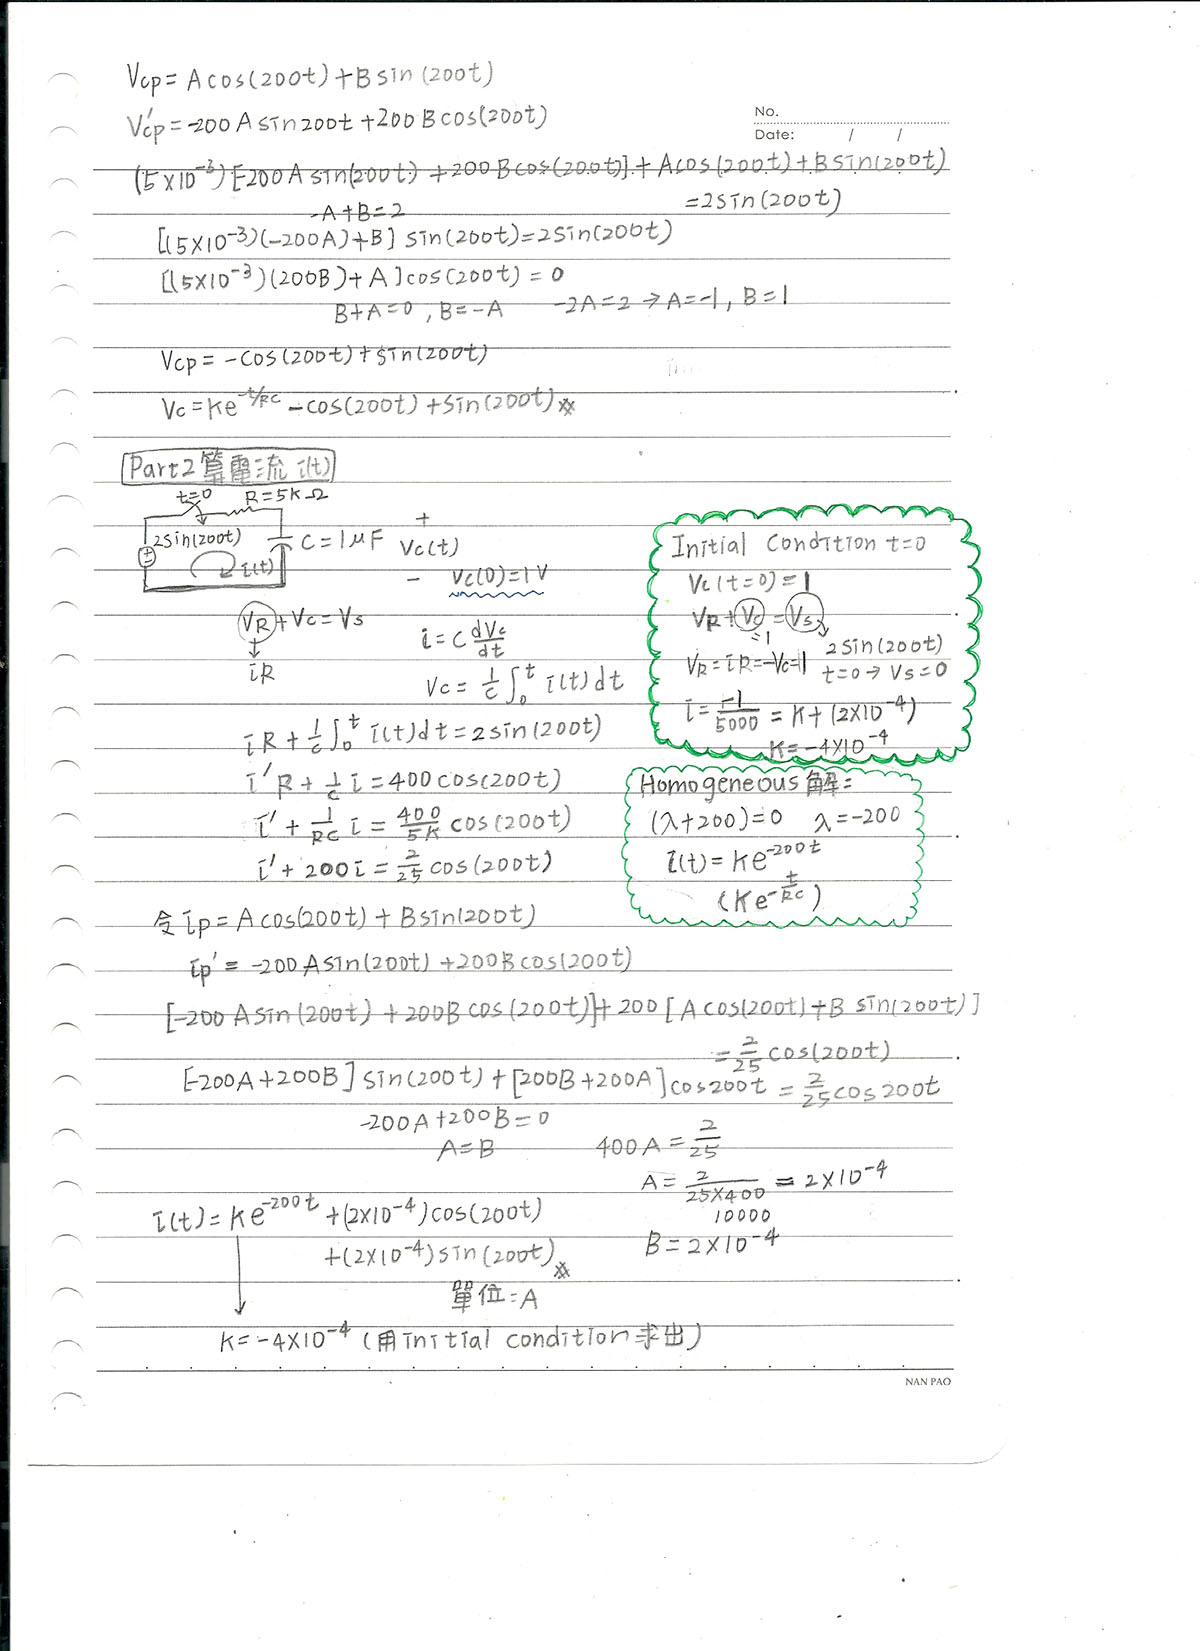 Vcp = A cos(200t) + B sin(200t)
V'cp = -200 A sin200t + 200 B cos(200t)
No.
Date: / /
(5×10⁻³) [-200 A sin(200t) + 200 B cos(200t)] + A cos(200t) + B sin(200t)
= 2 sin(200t)
-A+B=2
[(5×10⁻³)(-200A)+B] sin(200t)=2sin(200t)
[(5×10⁻³)(200B)+A] cos(200t) = 0
B+A=0 , B=-A -2A=2 → A=-1, B=1
Vcp = -cos(200t) + sin(200t)
Vc = Ke^(-t/RC) - cos(200t) + sin(200t)※
Part2 算電流 i(t)
t=0 R=5KΩ
2sin(200t) C=1μF Vc(t)
+
-
i(t)
Vc(0)=1V
VR + Vc = Vs
iR
i = C dVc/dt
Vc = 1/C ∫₀ᵗ i(t)dt
iR + 1/C ∫₀ᵗ i(t)dt = 2sin(200t)
i'R + 1/C i = 400cos(200t)
i' + 1/RC i = 400/5K cos(200t)
i' + 200i = 2/25 cos(200t)
Initial Condition t=0
Vc(t=0)=1
VR + Vc = Vs
=1
2sin(200t)
VR = iR = -Vc = -1 t=0 → Vs=0
i = -1/5000 = K + (2×10⁻⁴)
K = -4×10⁻⁴
Homogeneous 解:
(λ+200)=0 λ=-200
i(t) = Ke^(-200t)
(Ke^(-t/RC))
令 ip = A cos(200t) + B sin(200t)
ip' = -200 A sin(200t) + 200B cos(200t)
[-200 A sin(200t) + 200B cos(200t)] + 200 [A cos(200t) + B sin(200t)]
= 2/25 cos(200t)
[-200A+200B] sin(200t) + [200B+200A] cos200t = 2/25 cos200t
-200A+200B=0
A=B 400A = 2/25
A = 2/(25×400) = 2×10⁻⁴
10000
B = 2×10⁻⁴
i(t) = Ke^(-200t) + (2×10⁻⁴)cos(200t)
+(2×10⁻⁴)sin(200t)※
單位:A
K = -4×10⁻⁴ (用initial condition求出)
NAN PAO